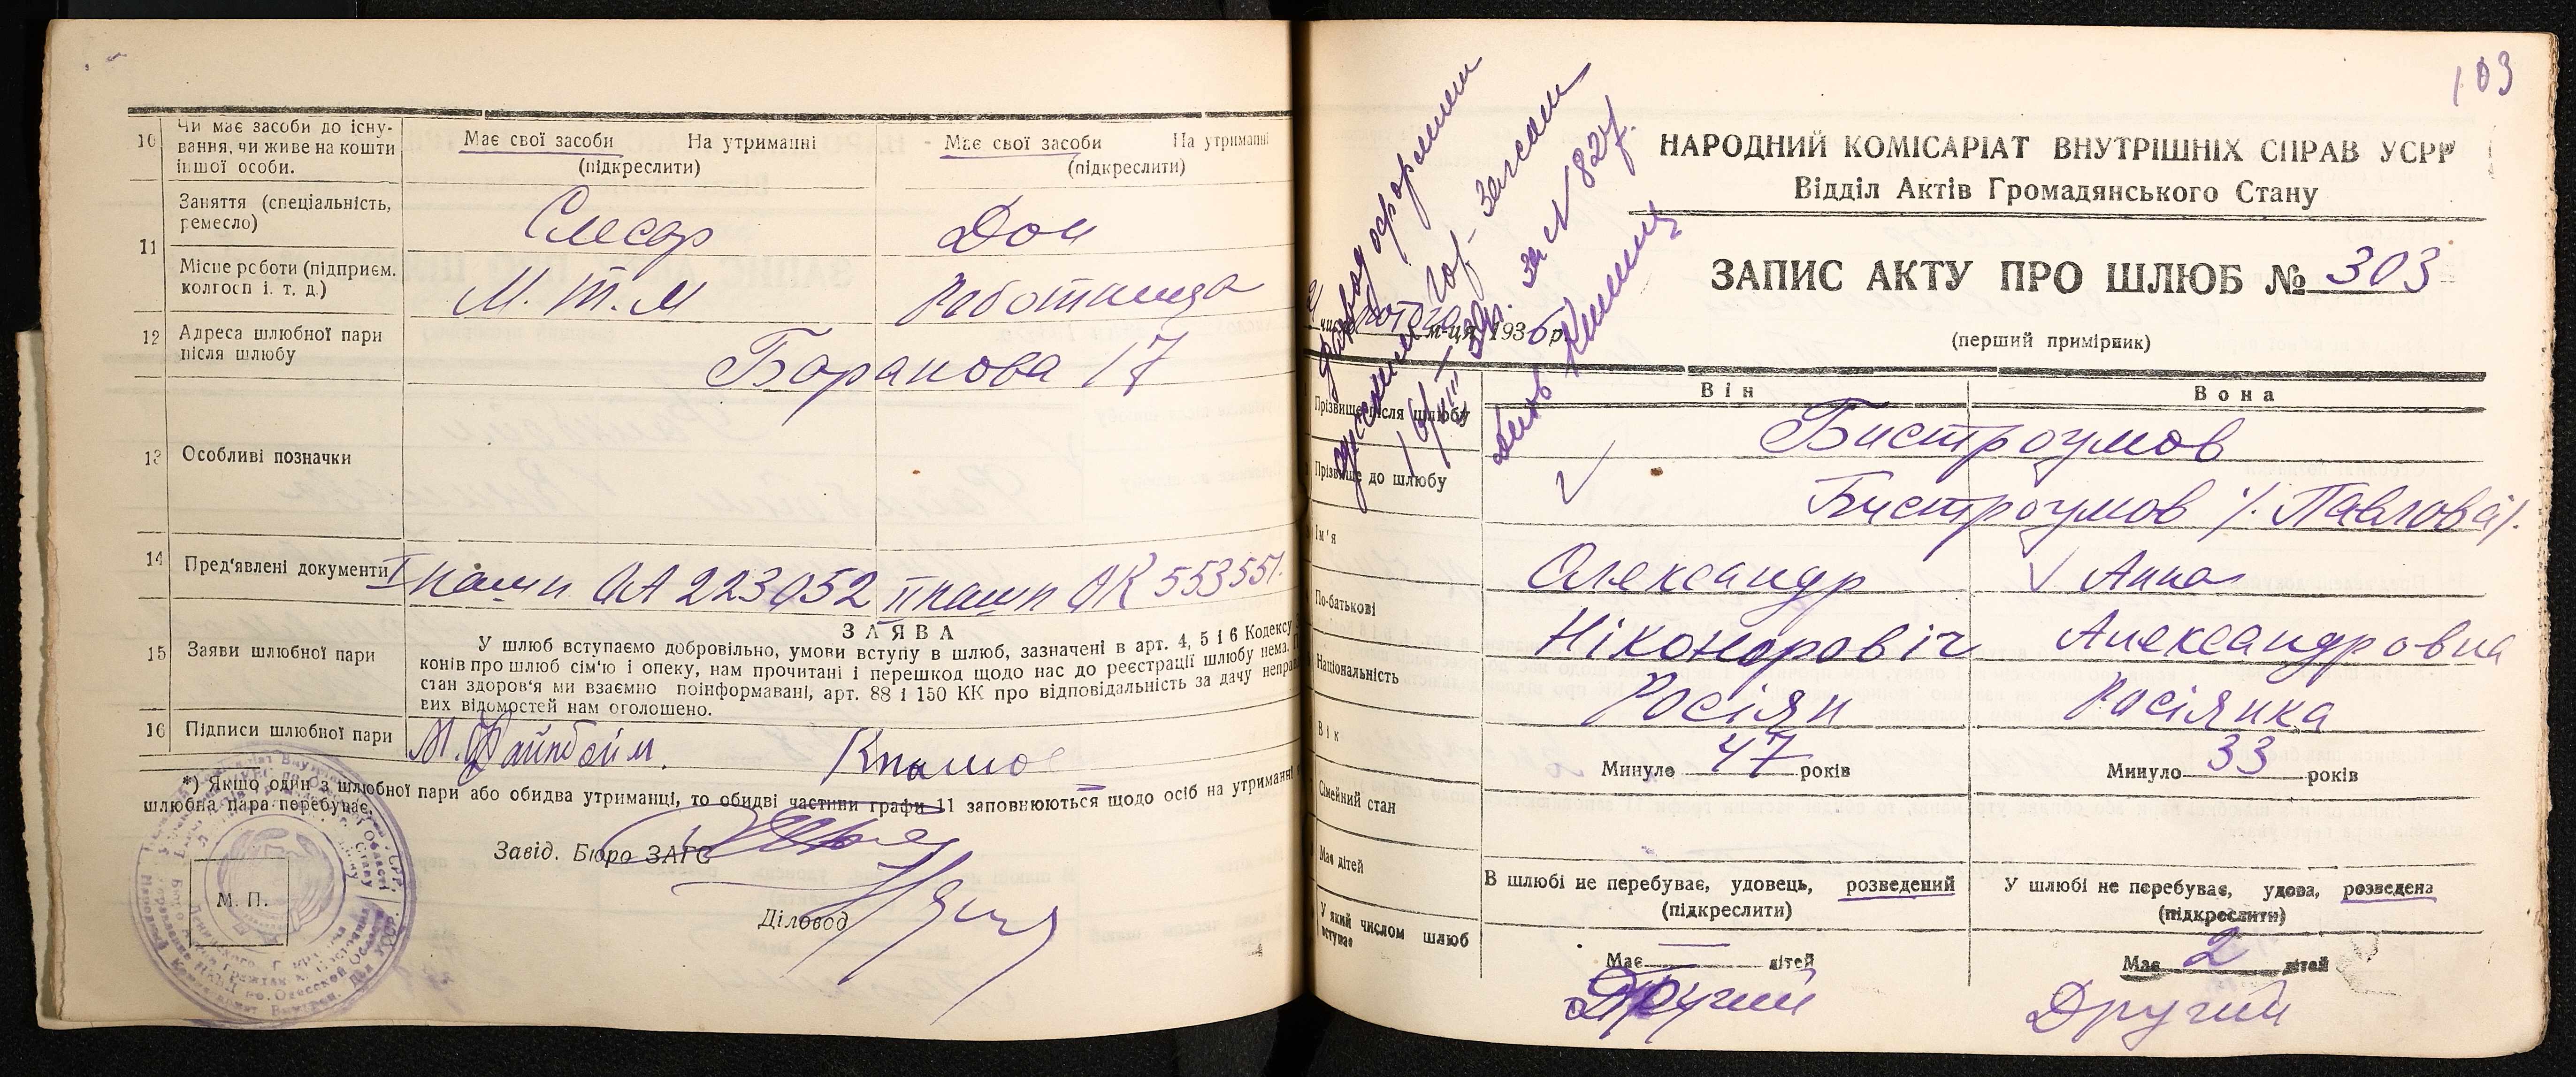 10
Чи має засоби до існу-
вання, чи живе на кошти
іншої особи.
Має свої засоби На утриманні
(підкреслити)
Має свої засоби На утриманні
(підкреслити)
11
Заняття (спеціальність,
ремесло)
Слесар
Дом
Місце роботи (підприєм.
колгосп і. т. д.)
М. т. М
Работница
12
Адреса шлюбної пари
після шлюбу
Баранова 17
13
Особливі позначки
14
Пред'явлені документи
I пашп ОА 223052 II пашп ОК 553551.
15
Заяви шлюбної пари
ЗАЯВА
У шлюб вступаємо добровільно, умови вступу в шлюб, зазначені в арт. 4, 5 і 6 Кодексу
конів про шлюб сім'ю і опеку, нам прочитані і перешкод щодо нас до реєстрації шлюбу нема.
стан здоров'я ми взаємно поінформавані, арт. 88 і 150 КК про відповідальність за дачу неправ
вих відомостей нам оголошено.
16
Підписи шлюбної пари
М. Файнбойм.
*) Якщо один з шлюбної пари або обидва утриманці, то обидві частини графи 11 заповнюються щодо осіб на утриманні
шлюбна пара перебуває.
Завід. Бюро ЗАГС
М. П.
Діловод
103
НАРОДНИЙ КОМІСАРІАТ ВНУТРІШНІХ СПРАВ УСРР
Відділ Актів Громадянського Стану
ЗАПИС АКТУ ПРО ШЛЮБ № 303
(перший примірник)
м-ця 1936 р.
Развод оформлен
Загсом
за № 827.
Він
Вона
Прізвище після шлюбу
Бистроумов
Прізвище до шлюбу
Бистроумов /. Павлова/.
Ім'я
Олександр
Анна
По-батькові
Ніконоровіч
Александровна
Національність
Росіян
Росіянка
Вік
Минуло 47 років
Минуло 33 років
Сімейний стан
В шлюбі не перебуває, удовець, розведений
(підкреслити)
У шлюбі не перебуває, удова, розведена
(підкреслити)
Має дітей
Має — дітей
Має 2 дітей
У який числом шлюб
вступає
Другий
Другий